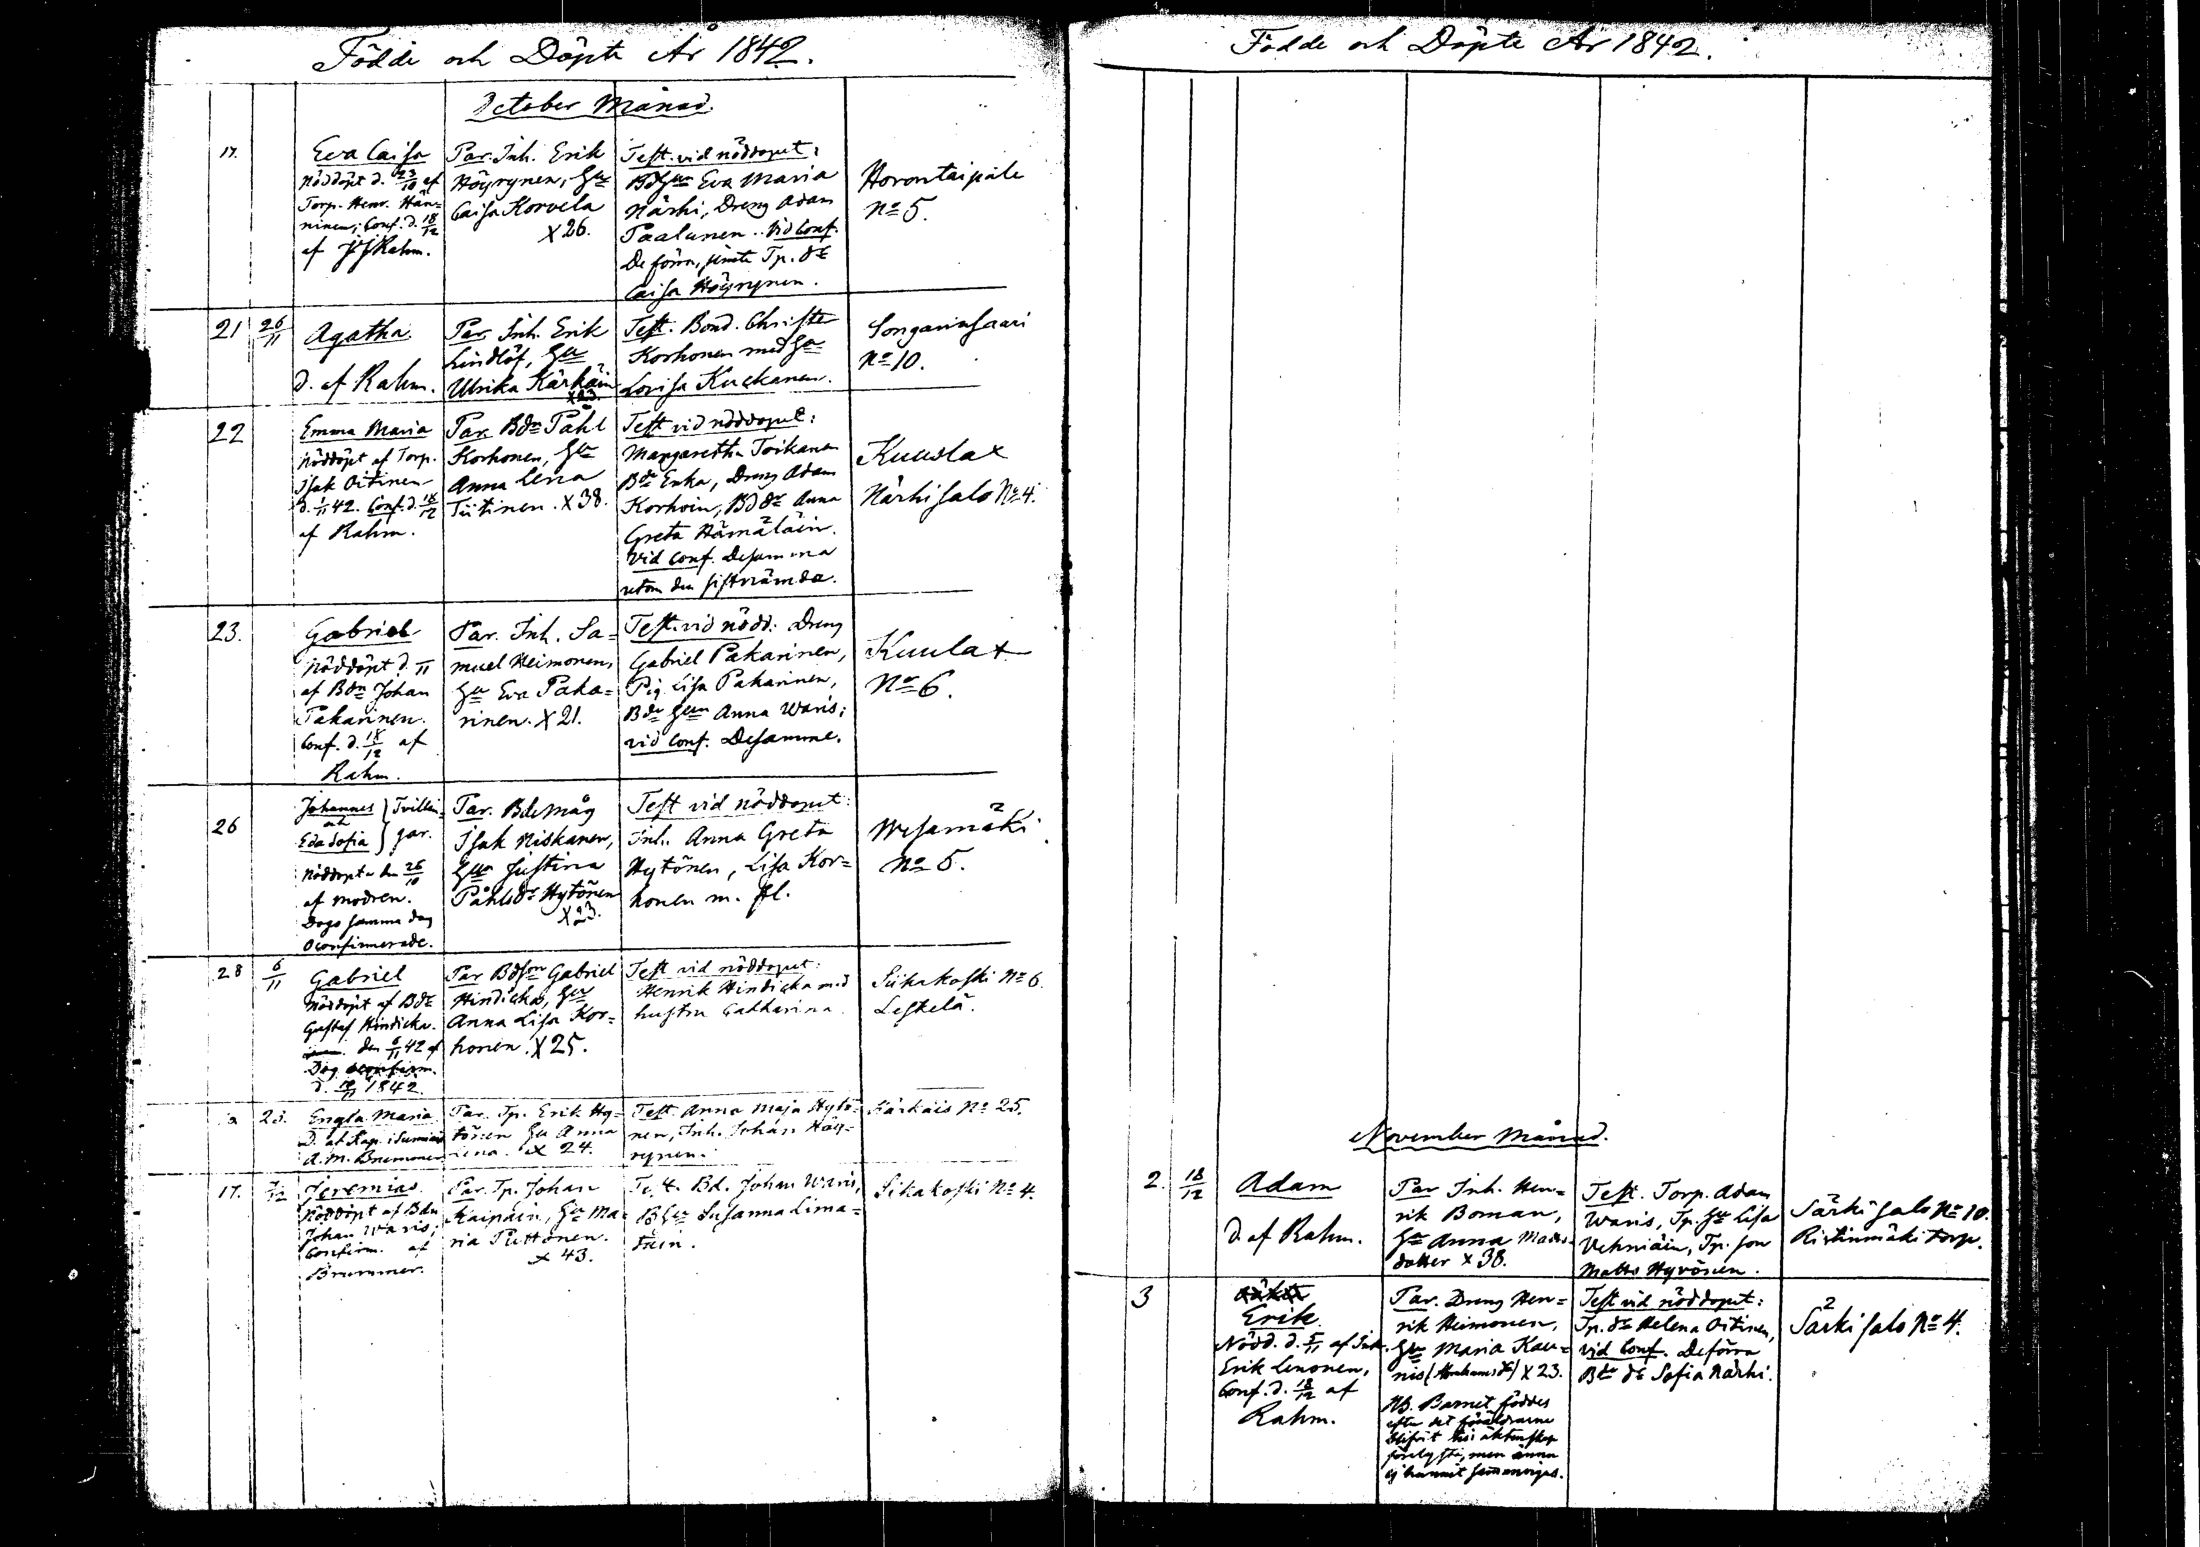 Födde och Döpte År 1842.
October Månad.
17.
Eva Caisa
Nöddöpt d. 23/10 af
Torp. Henr. Hän=
ninen; Conf. d. 18/12
af J J Rahm.
Par. Inh. Erik
Höyrynen, Hu
Caisa Korvela
X 26.
Test. vid nöddopet:
Bd Hu Eva Maria
Närhi, Dreng Adam
Paalanen. Vid Conf.
De förra, jämte Tp. dr
Caisa Höyrynen.
Horontaipale
No 5.
21 26/11
Agatha
d. af Rahm.
Par Inh. Erik
Lindlöf, Hu
Ulrika Kärkäin
X 23.
Test. Bond. Christer
Korhonen med Hu
Lovisa Kuckanen.
Songarinsaari
No 10.
22
Emma Maria
Nöddöpt af Torp.
Isak Oitinen
d. 1/11 42. Conf. d. 18/12
af Rahm.
Par. Bdn Påhl
Korhonen, Hu
Anna Lena
Tiitinen. X 38.
Test vid nöddopet:
Margaretha Toikanen
Bde Enka, Dreng Adam
Korhoin, Bd dr Anna
Greta Hämäläin.
Vid Conf. Desamma
utom den sistnämda.
Kuusla x
Närhisalo No 4.
23.
Gabriel
Nöddöpt d. /11
af Bdn Johan
Pakarinen.
Conf. d. 18/12 af
Rahm.
Par. Inh. Sa=
muel Heimonen,
Hu Eva Paka=
rinen. X 21.
Test. vid nödd: Dreng
Gabriel Pakarinen,
Pig Lisa Pakarinen,
Bde Hu Anna Waris;
vid Conf. Desamme.
Kuula x
No 6.
26
Johannes
och
Eda Sofia
Tvillin=
gar.
Nöddöpte den 26/10
af modren.
Dogo samma dag
oconfirmerade.
Par. Bdemåg
Isak Niskanen,
Hu Justina
Påhlsdr Hytönen
X 23.
Test vid nöddopet:
Inh. Anna Greta
Hytönen, Lisa Kor=
honen m. fl.
Wesamäki
No 5.
28 6/11
Gabriel
Nöddöpt af Bde
Gustaf Hindicka.
den 6/11 42 af
Dog oconfirm.
d. 1842.
Par Bdson Gabriel
Hindicka, Hu
Anna Lisa Kor=
honen. X 25.
Test vid nöddopet:
Henrik Hindicka med
hustru Catharina.
Siikakoski No 6.
Leskelä.
2 23.
Engla Maria
D. af Kap. i Sumiais
A. M. Brummer
Par. Tp. Erik Hy=
tönen Hu Anna
Lena. X 24.
Test. Anna Maja Hytö=
nen, Inh. Johan Höy=
rynen.
Kärkäis No 25.
17. 2/12
Jeremias
Nöddöpt af Bdn
Johan Waris;
Confirm. af
Brummer.
Par. Tp. Johan
Kaipain, Hu Ma=
ria Puttonen.
x 43.
Test. Bd. Johan Waris,
B Hu Susanna Lima=
täin.
Sikakoski No 4.
Födde och Döpte År 1842.
November Månad.
2. 18/12
Adam
d. af Rahm.
Par Inh. Hen=
rik Boman,
Hu Anna Mads=
dotter x 38.
Test. Torp. Adam
Waris, Tp. Hu Lisa
Vehniäin, Tp. son
Matts Hyvönen.
Särkisalo No 10.
Ristinmäki torp.
3
Erik
Nödd. d. 5/11 af Inh.
Erik Lenonen,
Conf. d. 18/12 af
Rahm.
Par. Dreng Hen=
rik Heimonen,
Hu Maria Kau=
nis (Abrahamsdr) X 23.
NB. Barnet föddes
efter det föräldrarne
blifvit till äktenskap
förelyste, men ännu
ej hunnit sammanvigas.
Test vid nöddopet:
Tp. dr Helena Oitinen,
vid Conf. De förra
Bde dr Sofia Närhi.
Särkisalo No 4.